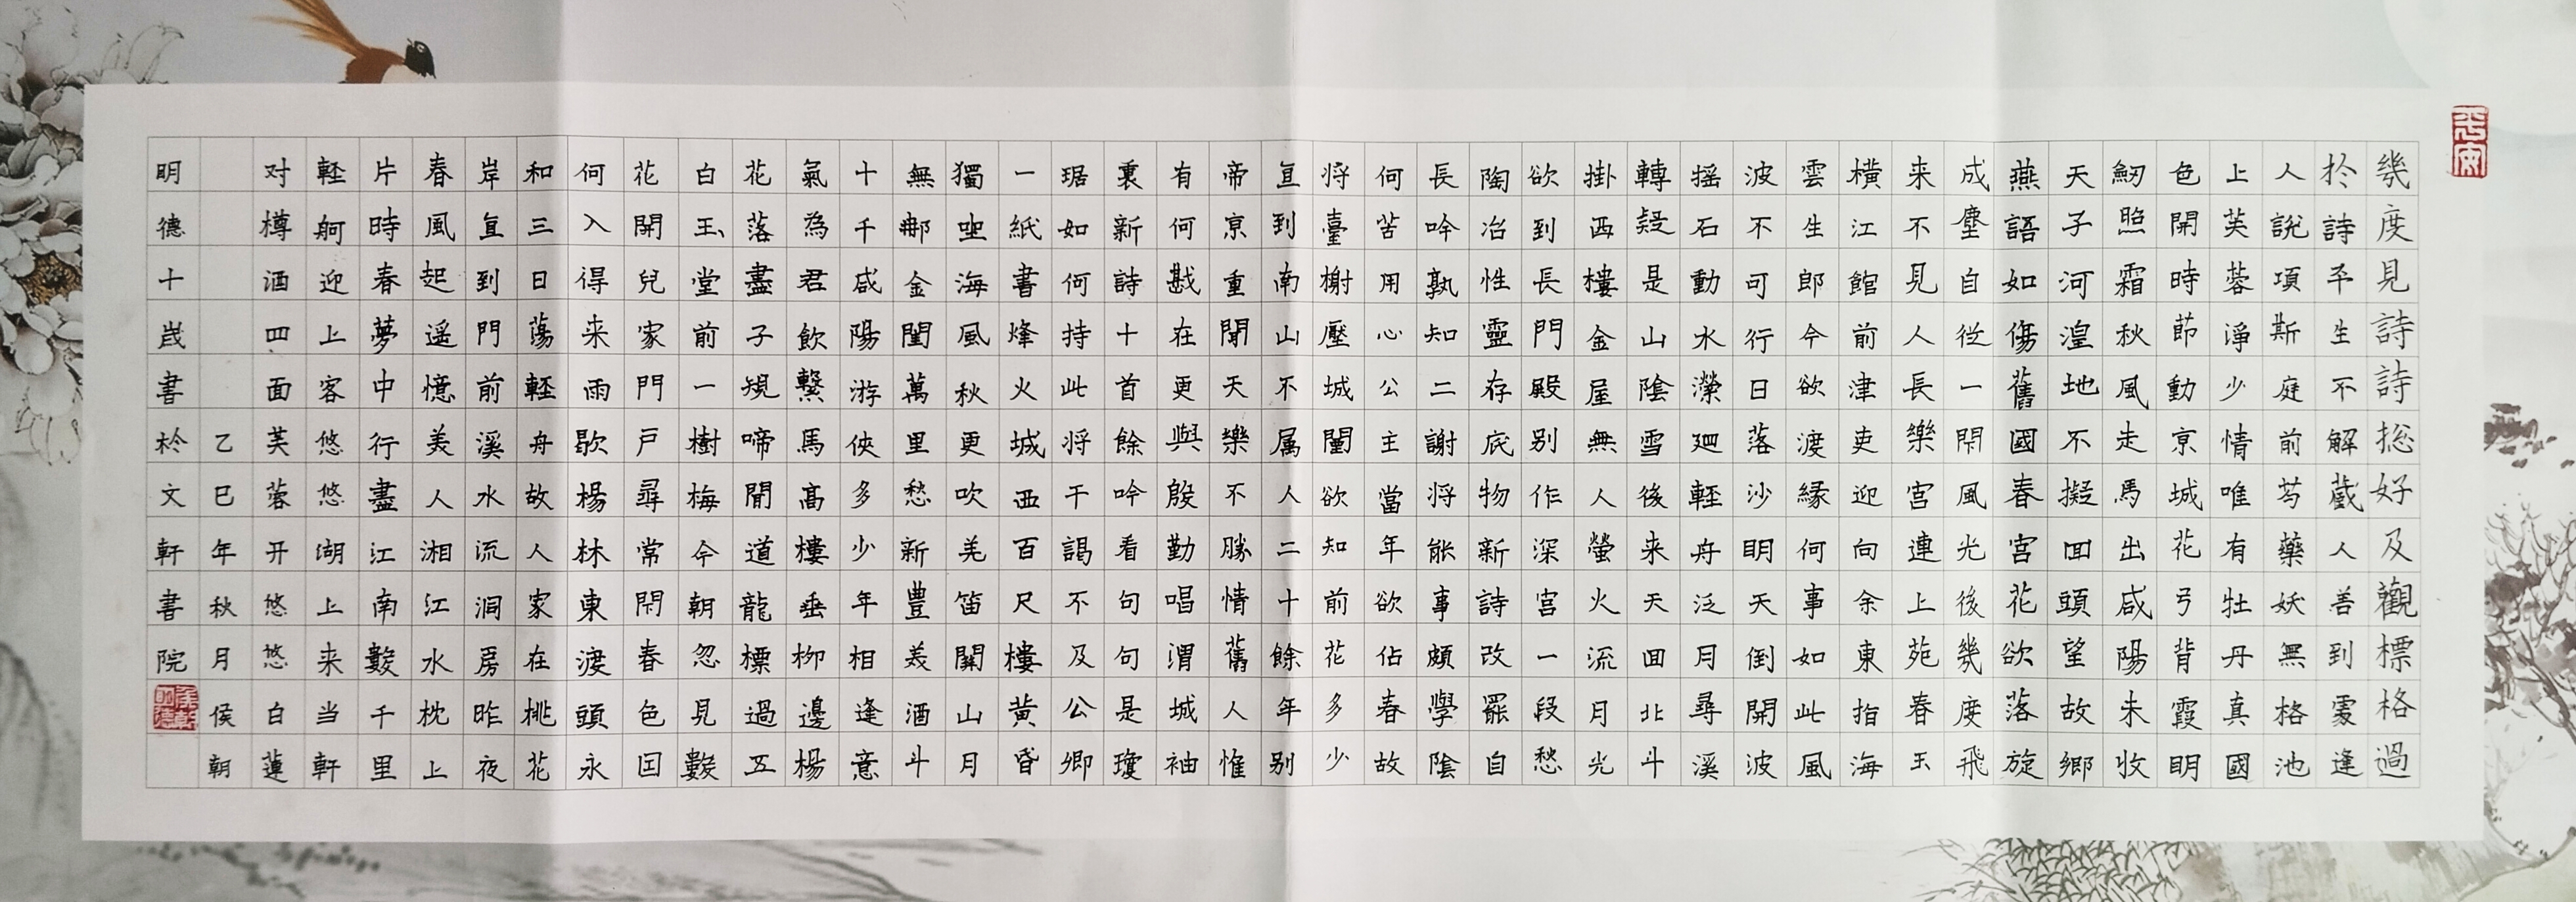 平安
幾度見詩詩捴好及觀標格過
於詩平生不解蔵人善到處逢
人說項斯庭前芍藥妖無格池
上芙蓉淨少情唯有牡丹真國
色開時節動京城花弓背霞明
劒照霜秋風走馬出咸陽未收
天子河湟地不擬回頭望故鄉
燕語如傷舊國春宮花欲落旋
成塵自從一閇風光後幾度飛
来不見人長樂宮連上苑春玉
橫江館前津吏迎向余東指海
雲生郎今欲渡緣何事如此風
波不可行日落沙明天倒開波
摇石動水濴迴輕舟泛月尋溪
轉疑是山陰雪後来天回北斗
掛西樓金屋無人螢火流月光
欲到長門殿别作深宮一段愁
陶冶性靈存底物新詩改罷自
長吟孰知二謝将能事頗學陰
何苦用心公主當年欲佔春故
将臺榭壓城闉欲知前花多少
直到南山不属人二十餘年别
帝京重聞天樂不勝情舊人惟
有何戡在更與殷勤唱渭城袖
裏新詩十首餘吟看句句是瓊
琚如何持此将干謁不及公卿
一紙書烽火城西百尺樓黃昏
獨坐海風秋更吹羌笛關山月
無那金閨萬里愁新豐美酒斗
十千咸陽游俠多少年相逢意
氣為君飲繫馬高樓垂柳邊楊
花落盡子規啼聞道龍標過五
白玉堂前一樹梅今朝忽見數
花開兒家門戶尋常閇春色因
何入得来雨歇楊林東渡頭永
和三日蕩輕舟故人家在桃花
岸直到門前溪水流洞房昨夜
春風起遥憶美人湘江水枕上
片時春夢中行盡江南數千里
輕舸迎上客悠悠湖上来当軒
对樽酒四面芙蓉开悠悠白蓮
乙巳年秋月侯朝
明德十歲書於文軒書院